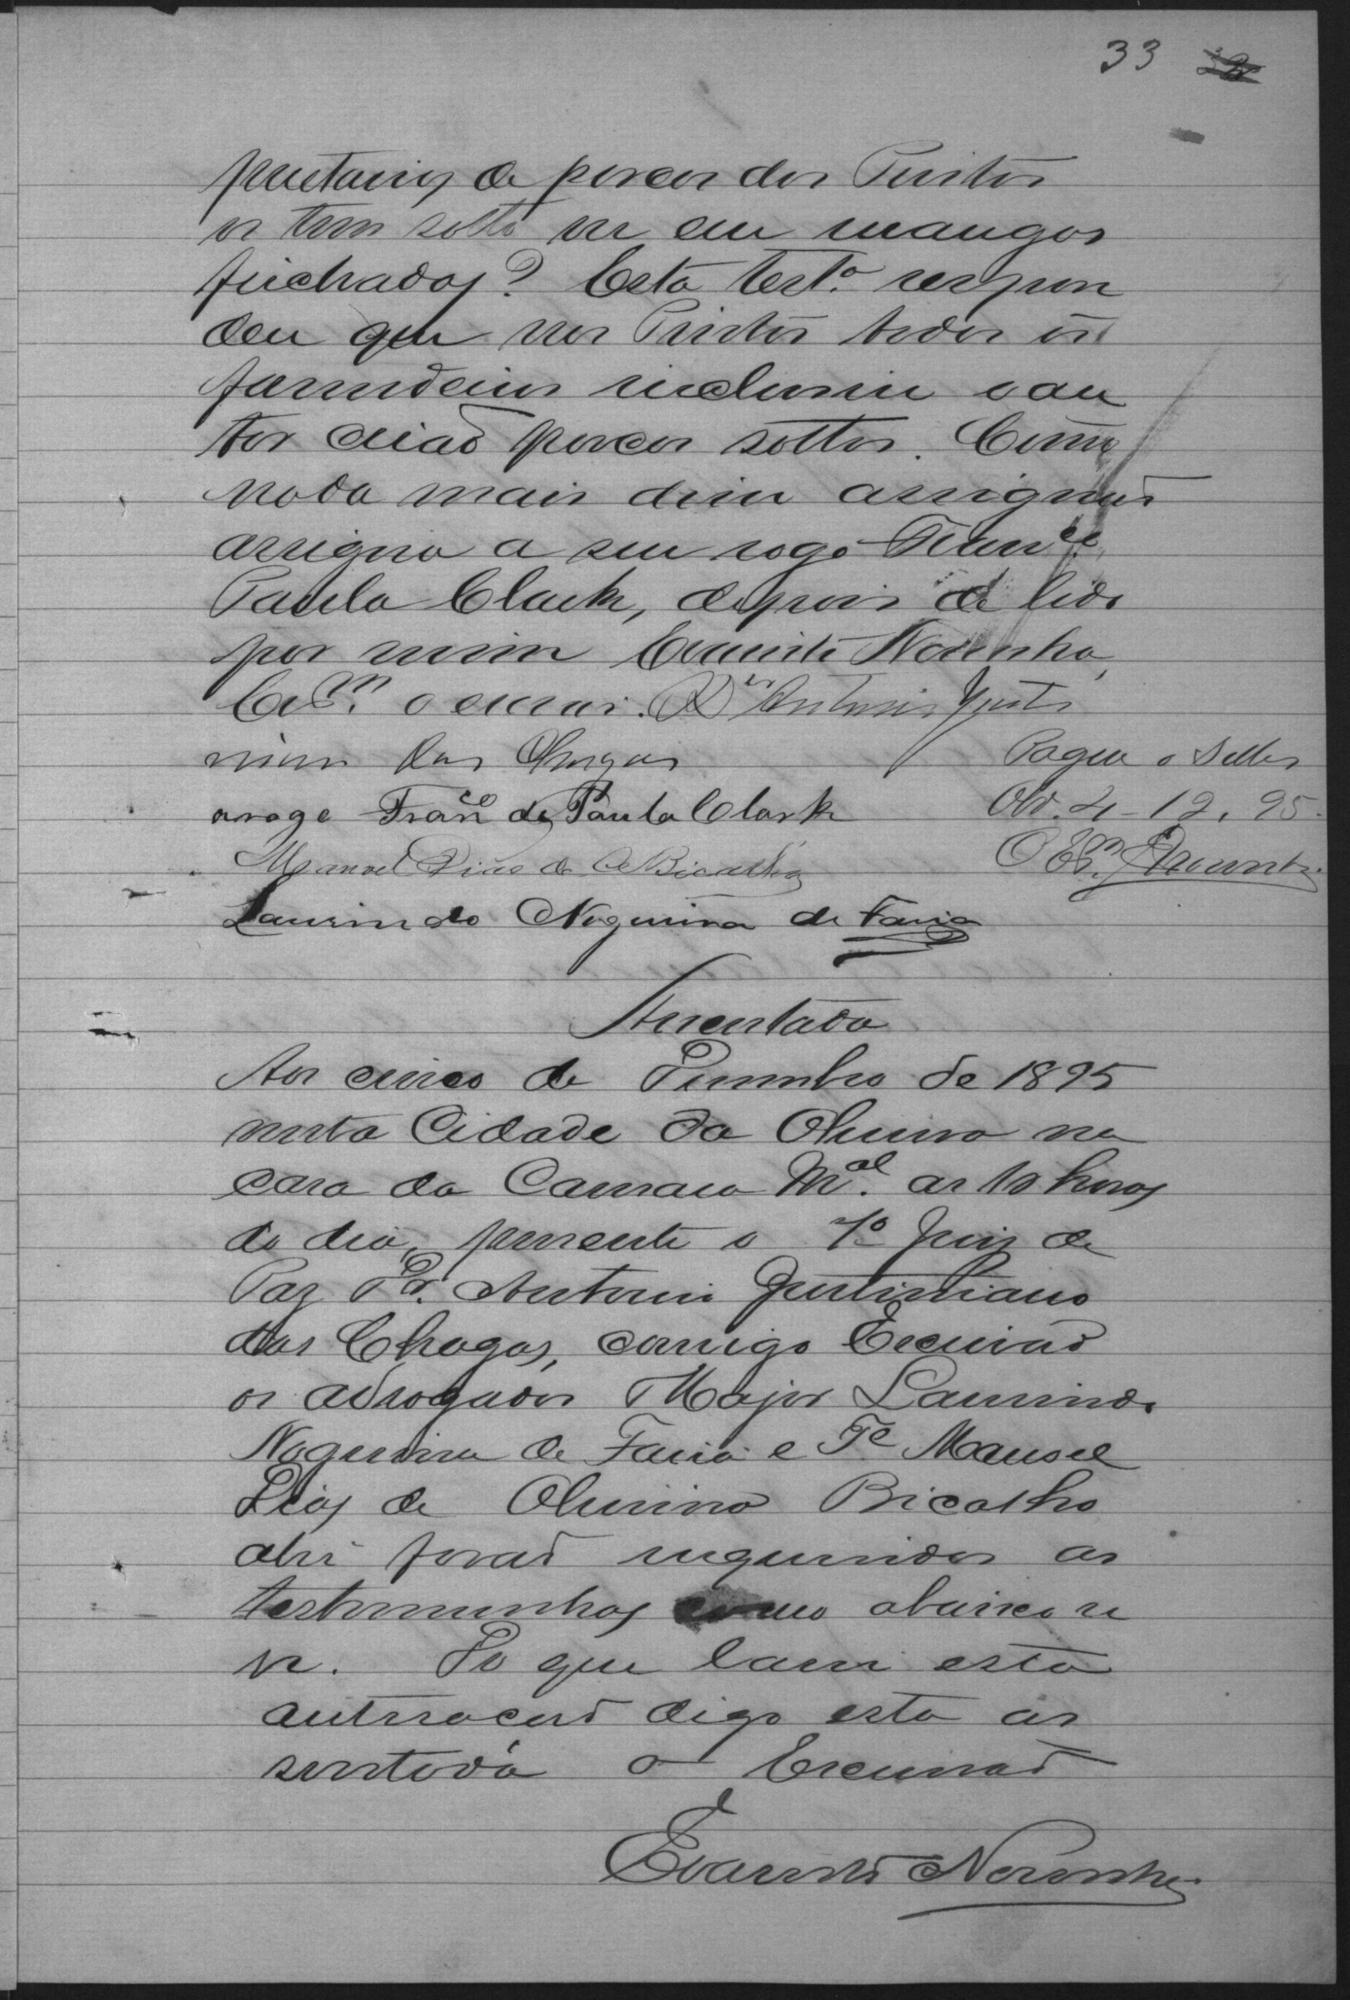 33
prietarios de porcos dos Puritos
os tem solto ou em mangas
feichadas? Esta test.ª respon
deu que nos Puritos todos os
fasendeiros inclusive o au
tor criaõ porcos soltos. Como
nada mais disse assignad
assigna a seu rogo Fran.co
Paula Clark, depois de lido
por mim Evaristo Noronha,
Es.m o escrevi. Dr Antonio Justi
niano das Chagas
arogo Fran.co de Paula Clark
Pagou o Sello
Ob. 4-12, 95.
O Es.m Evaristo
Manoel Dias de O Bicalho
Laurindo Nogueira de Faria
Assentada
Aos cinco de Dezembro de 1895
nesta Cidade da Oliveira na
casa da Camara M.al as 10 horas
do dia, presente o 1º Juiz de
Paz Dr. Antonio Justiniano
das Chagas, comigo Escrivaõ
os advogados Major Laurindo
Nogueira de Faria e Te Manoel
Dias de Oliveira Bicalho
ahi foraõ inqueridos as
testemunhas como abaixo se
ve. Do que lavrei esta
digo esta as
sentada o Escrivaõ
Evaristo Noronha